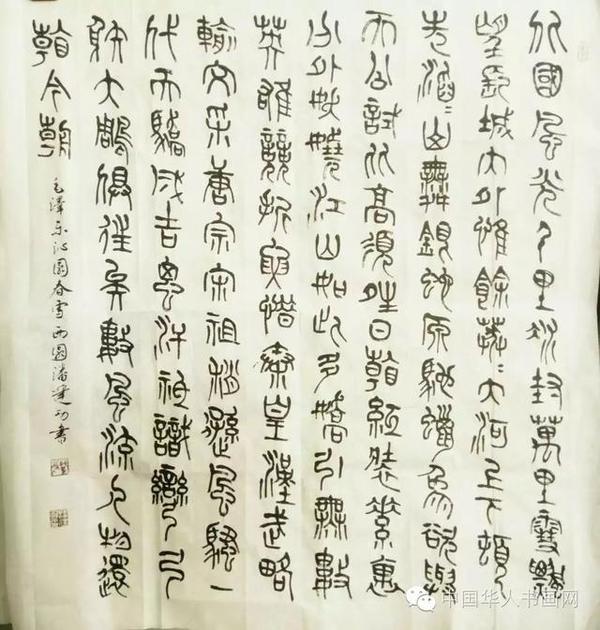 北國風光千里冰封萬里雪飄
望長城內外惟餘莽〻大河上下頓
失滔〻山舞銀蛇原馳蠟象欲與
天公試比高須晴日看紅裝素裹
分外妖嬈江山如此多嬌引無數
英雄競折腰惜秦皇漢武略
輸文采唐宗宋祖稍遜風騷一
代天驕成吉思汗祇識彎弓
射大鵰俱往矣數風流人物還
看今朝
毛澤東沁園春雪西園潘建功書
中国华人书画网